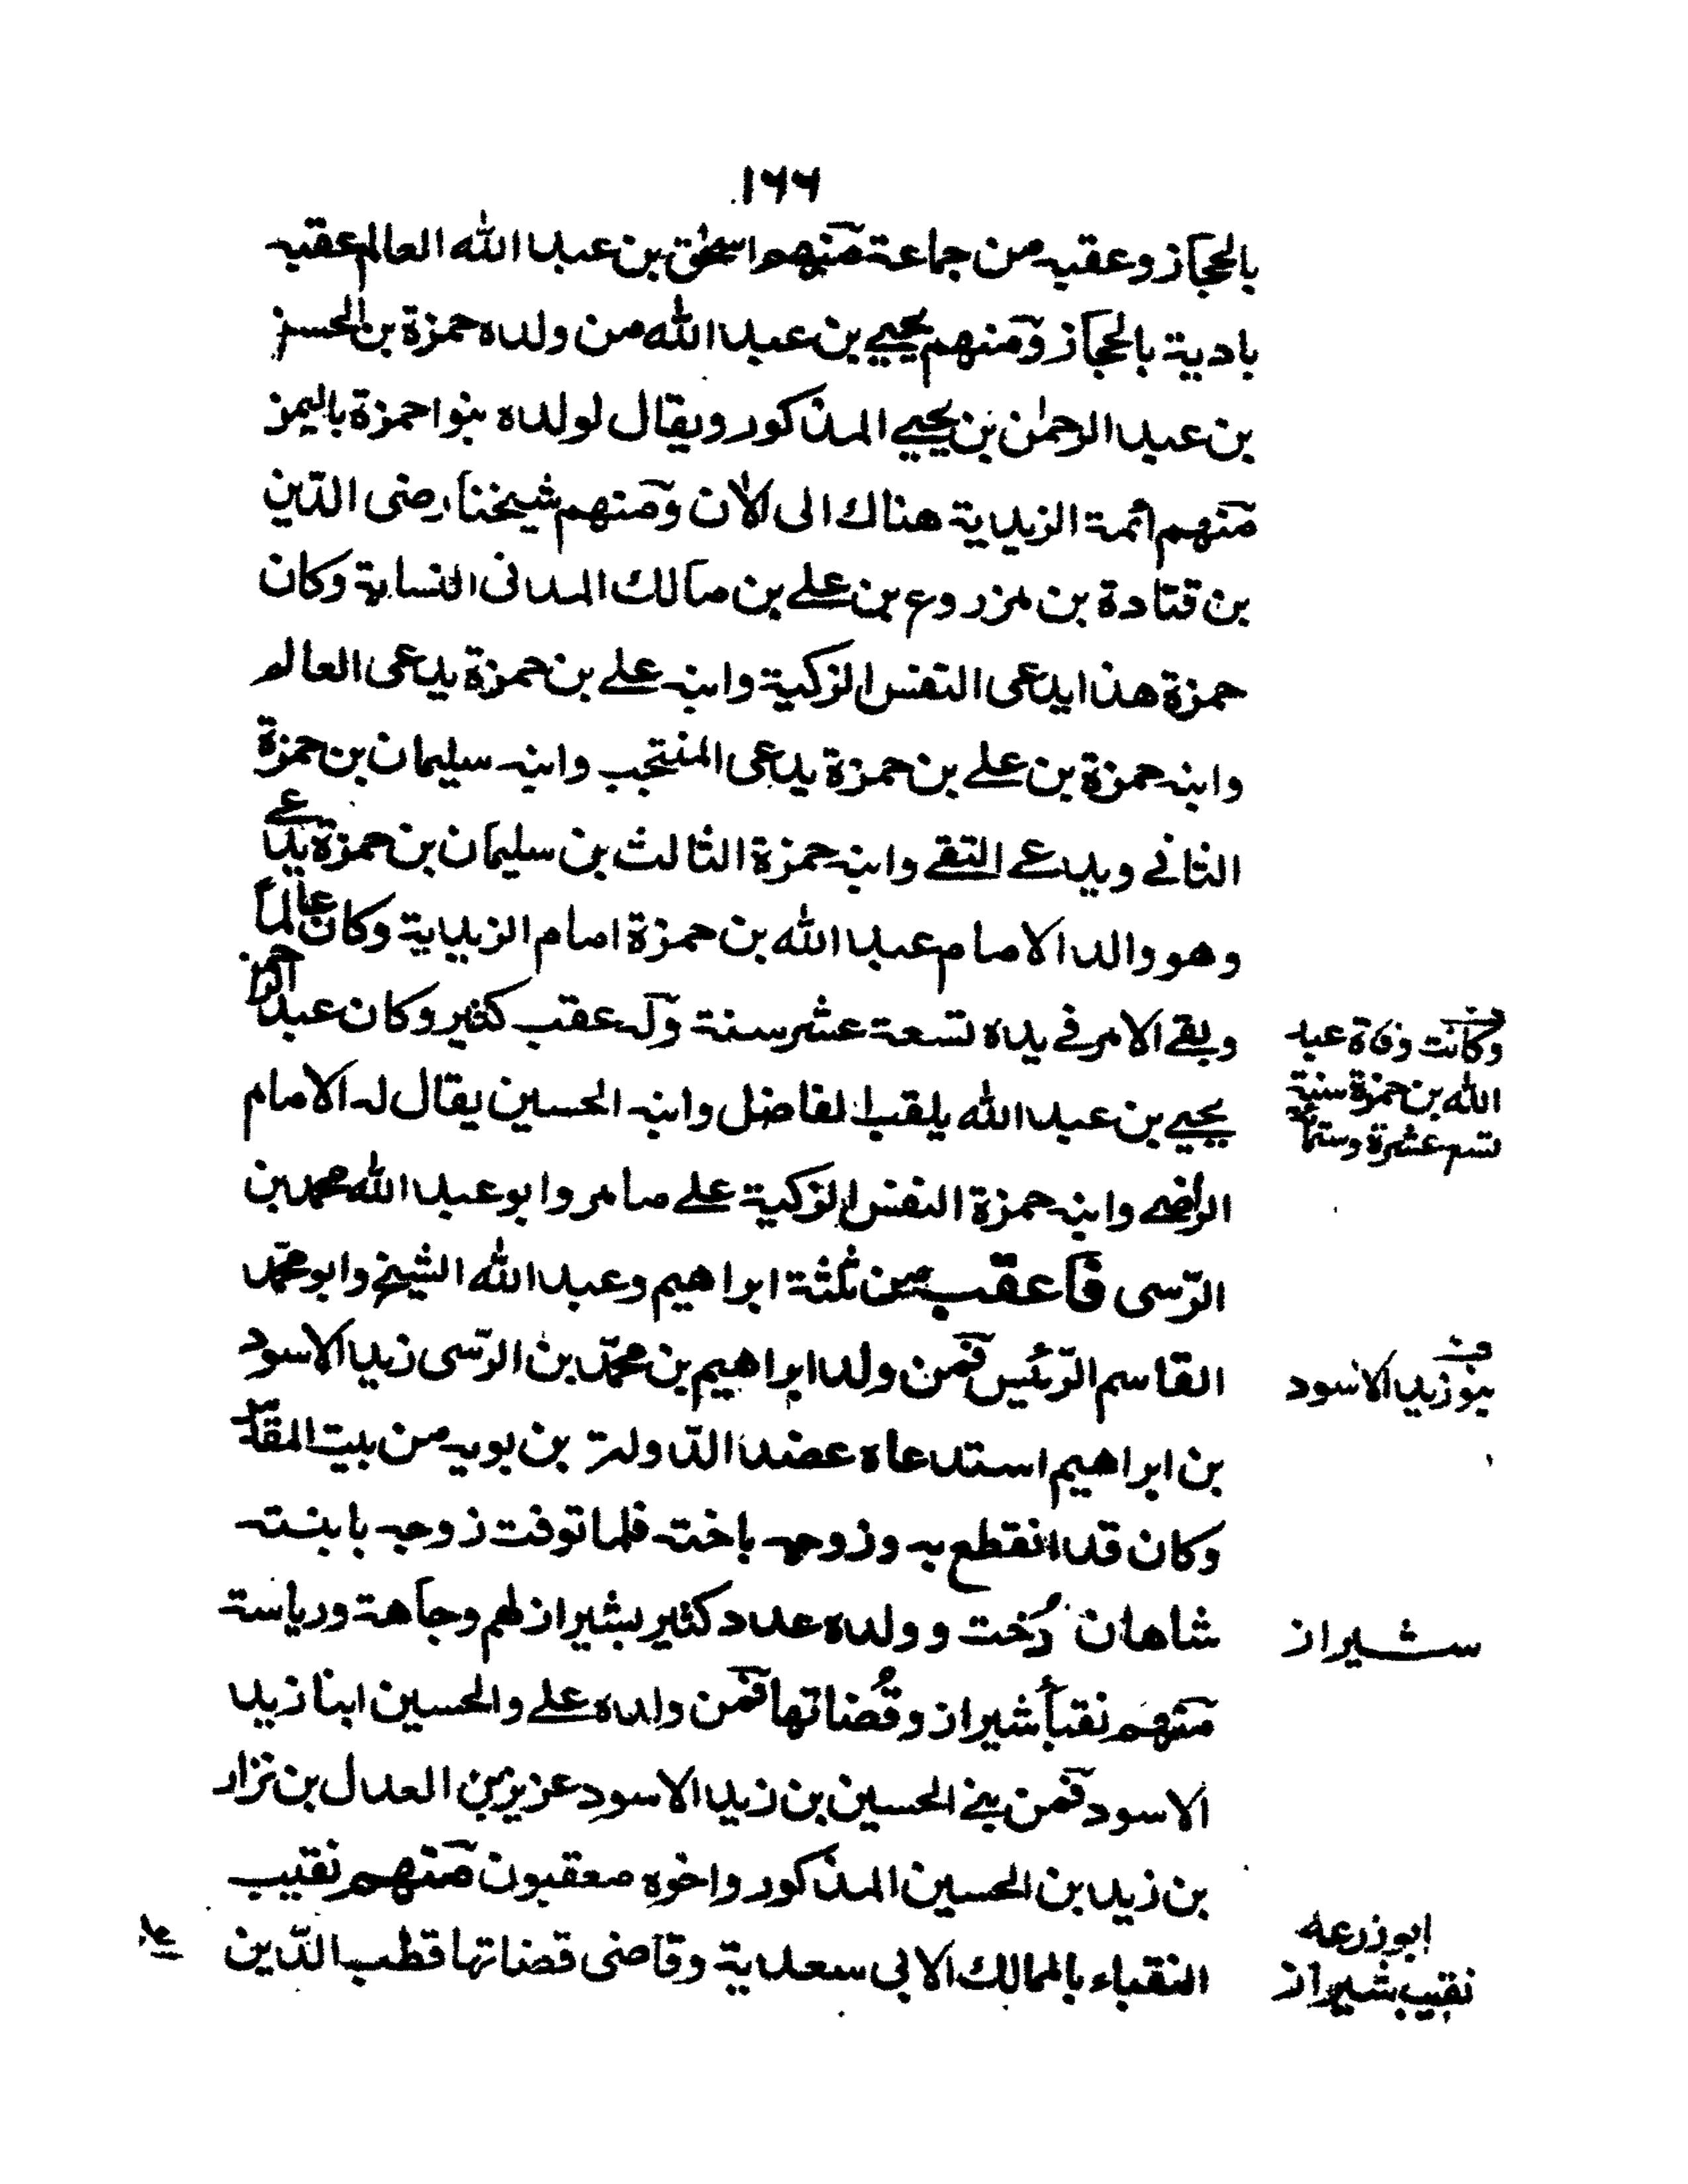 ١٦٦
بالحجاز وعقبه من جماعة منهم اسحٰق بن عبد الله العالم عقبه
بادية بالحجاز ومنهم يحيي بن عبد الله من ولده حمزة بن الحسن
بن عبد الرحمٰن بن يحيي المذكور ويقال لولده بنوا حمزة باليمن
منهم ائمة الزيدية هناك الى الآن ومنهم شيخنا رضى الدّين
بن قتادة بن مزروع بن علے بن مالك المدنى النسابة وكان
حمزة هذا يدعى النفس الزكية وابنه علے بن حمزة يدعى العالم
وابنه حمزة بن علے بن حمزة يدعى المنتجب وابنه سليمان بن حمزة
الثانے ويدعے التقے وابنه حمزة الثالث بن سليمان بن حمزة يدعے
وهو والد الامام عبد الله بن حمزة امام الزيدية وكان عالماً
وبقے الامر فے يده تسعة عشر سنة وله عقب كثير وكان عبد الرحمن
يحيے بن عبد الله يلقب الفاضل وابنه الحسين يقال له الامام
الراضے وابنه حمزة النفس الزكية علے ما مر وابو عبد الله محمد بن
الرّسى فاعقب من ثلٰثة ابراهيم وعبد الله الشيخ وابو محمّد
القاسم الرّئيس فمن ولد ابراهيم بن محمّد بن الرّسى زيد الاسود
بن ابراهيم استدعاه عضد الدّولة بن بويه من بيت المقدّس
وكان قد انقطع به وزوجه باخته فلما توفت زوجه بابنته
شاهان دُخت وولده عدد كثير بشيراز لهم وجاهة ورياسة
منهم نقبأ شيراز وقُضاتها فمن ولده علے والحسين ابنا زيد
الاسود فمن بنے الحسين بن زيد الاسود عزيز بن العدل بن نزار
بن زيد بن الحسين المذكور واخوه معقبون منهم نقيب
النقباء بالممالك الابى سعدية وقاضى قضاتها قطب الدّين
وكانت وفاة عبد
الله بن حمزة سنة
تسع عشرة وستمائة
بنو زيد الاسود
شيراز
ابو زرعه
نقيب شيراز